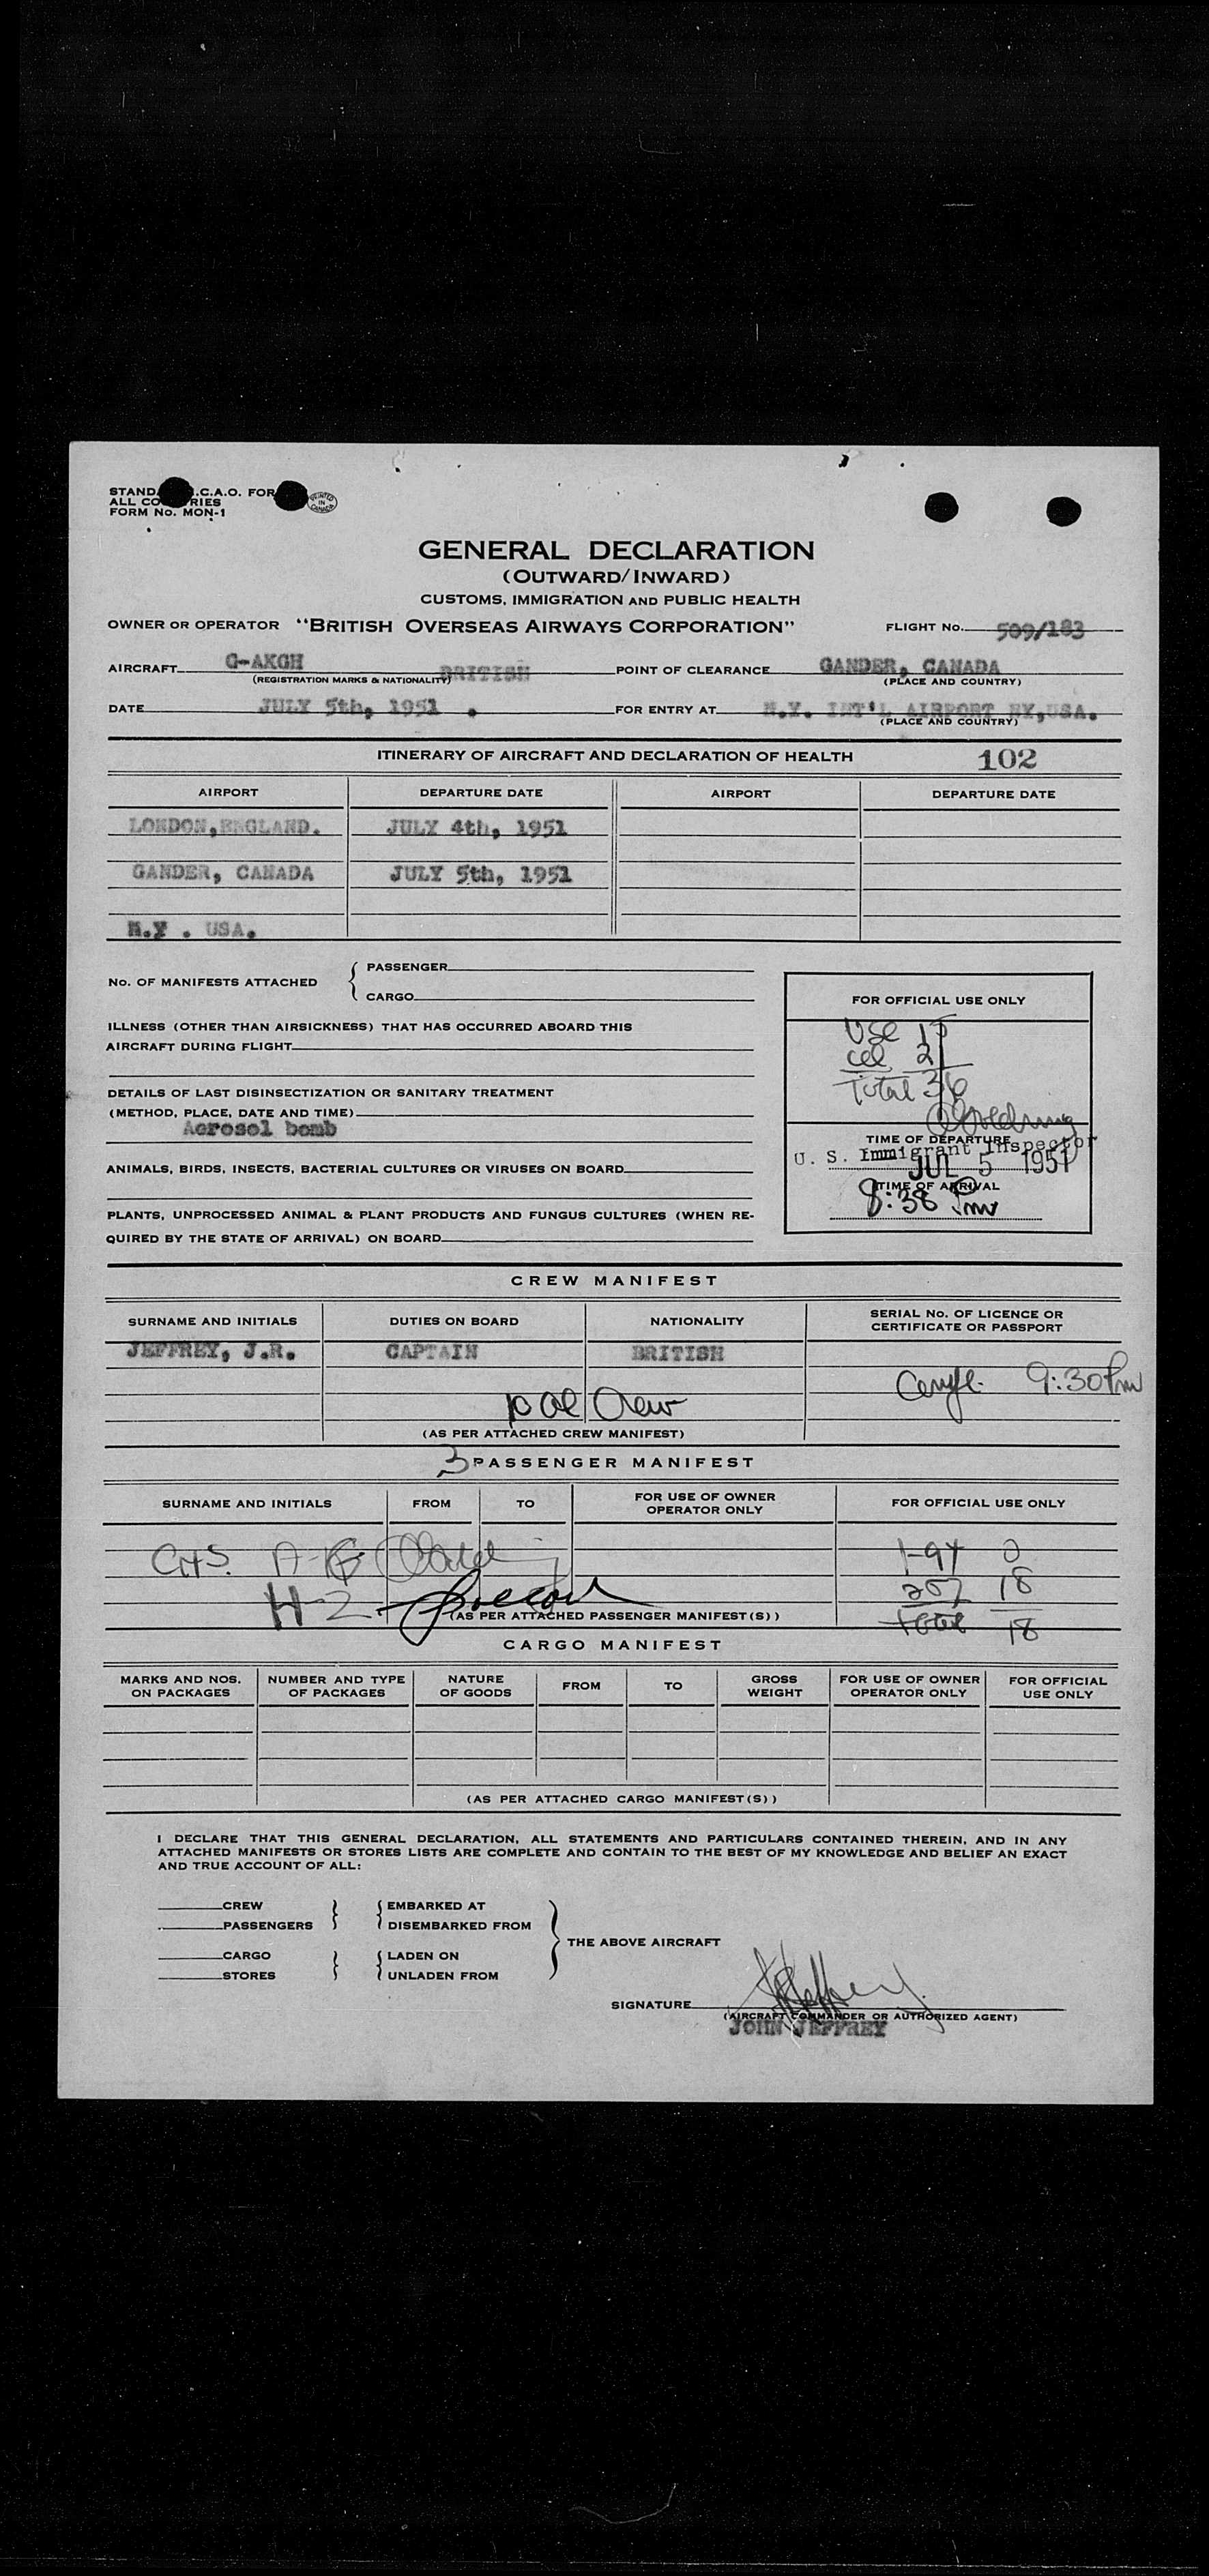 STAND .C.A.O. FOR
ALL CO RIES
FORM No. MON-1
PRINTED IN CANADA
GENERAL DECLARATION
(OUTWARD/INWARD)
CUSTOMS, IMMIGRATION AND PUBLIC HEALTH
OWNER OR OPERATOR "BRITISH OVERSEAS AIRWAYS CORPORATION" FLIGHT No. 509/183
AIRCRAFT G-AKGH BRITISH POINT OF CLEARANCE GANDER, CANADA
(REGISTRATION MARKS & NATIONALITY) (PLACE AND COUNTRY)
DATE JULY 5th, 1951 . FOR ENTRY AT N.Y. INT'L AIRPORT NY,USA.
(PLACE AND COUNTRY)
ITINERARY OF AIRCRAFT AND DECLARATION OF HEALTH 102
AIRPORT DEPARTURE DATE AIRPORT DEPARTURE DATE
LONDON,ENGLAND. JULY 4th, 1951
GANDER, CANADA JULY 5th, 1951
N.Y . USA.
No. OF MANIFESTS ATTACHED
PASSENGER
CARGO
ILLNESS (OTHER THAN AIRSICKNESS) THAT HAS OCCURRED ABOARD THIS
AIRCRAFT DURING FLIGHT
DETAILS OF LAST DISINSECTIZATION OR SANITARY TREATMENT
(METHOD, PLACE, DATE AND TIME)
Aerosol bomb
ANIMALS, BIRDS, INSECTS, BACTERIAL CULTURES OR VIRUSES ON BOARD
PLANTS, UNPROCESSED ANIMAL & PLANT PRODUCTS AND FUNGUS CULTURES (WHEN RE-
QUIRED BY THE STATE OF ARRIVAL) ON BOARD
FOR OFFICIAL USE ONLY
USC 15
al 21
Total 36
TIME OF DEPARTURE
U. S. Immigrant Inspector
JUL 5 1951
TIME OF ARRIVAL
8:38 Pm
CREW MANIFEST
SURNAME AND INITIALS DUTIES ON BOARD NATIONALITY SERIAL No. OF LICENCE OR
CERTIFICATE OR PASSPORT
JEFFREY, J.R. CAPTAIN BRITISH
9:30 Pm
10 al Crew
(AS PER ATTACHED CREW MANIFEST)
3 PASSENGER MANIFEST
SURNAME AND INITIALS FROM TO FOR USE OF OWNER
OPERATOR ONLY FOR OFFICIAL USE ONLY
1-94 0
A-G
257 18
H-Z
(AS PER ATTACHED PASSENGER MANIFEST(S))
Total 18
CARGO MANIFEST
MARKS AND NOS.
ON PACKAGES NUMBER AND TYPE
OF PACKAGES NATURE
OF GOODS FROM TO GROSS
WEIGHT FOR USE OF OWNER
OPERATOR ONLY FOR OFFICIAL
USE ONLY
(AS PER ATTACHED CARGO MANIFEST(S))
I DECLARE THAT THIS GENERAL DECLARATION, ALL STATEMENTS AND PARTICULARS CONTAINED THEREIN, AND IN ANY
ATTACHED MANIFESTS OR STORES LISTS ARE COMPLETE AND CONTAIN TO THE BEST OF MY KNOWLEDGE AND BELIEF AN EXACT
AND TRUE ACCOUNT OF ALL:
CREW EMBARKED AT
PASSENGERS DISEMBARKED FROM
THE ABOVE AIRCRAFT
CARGO LADEN ON
STORES UNLADEN FROM
SIGNATURE JRJeffrey.
(AIRCRAFT COMMANDER OR AUTHORIZED AGENT)
JOHN JEFFREY